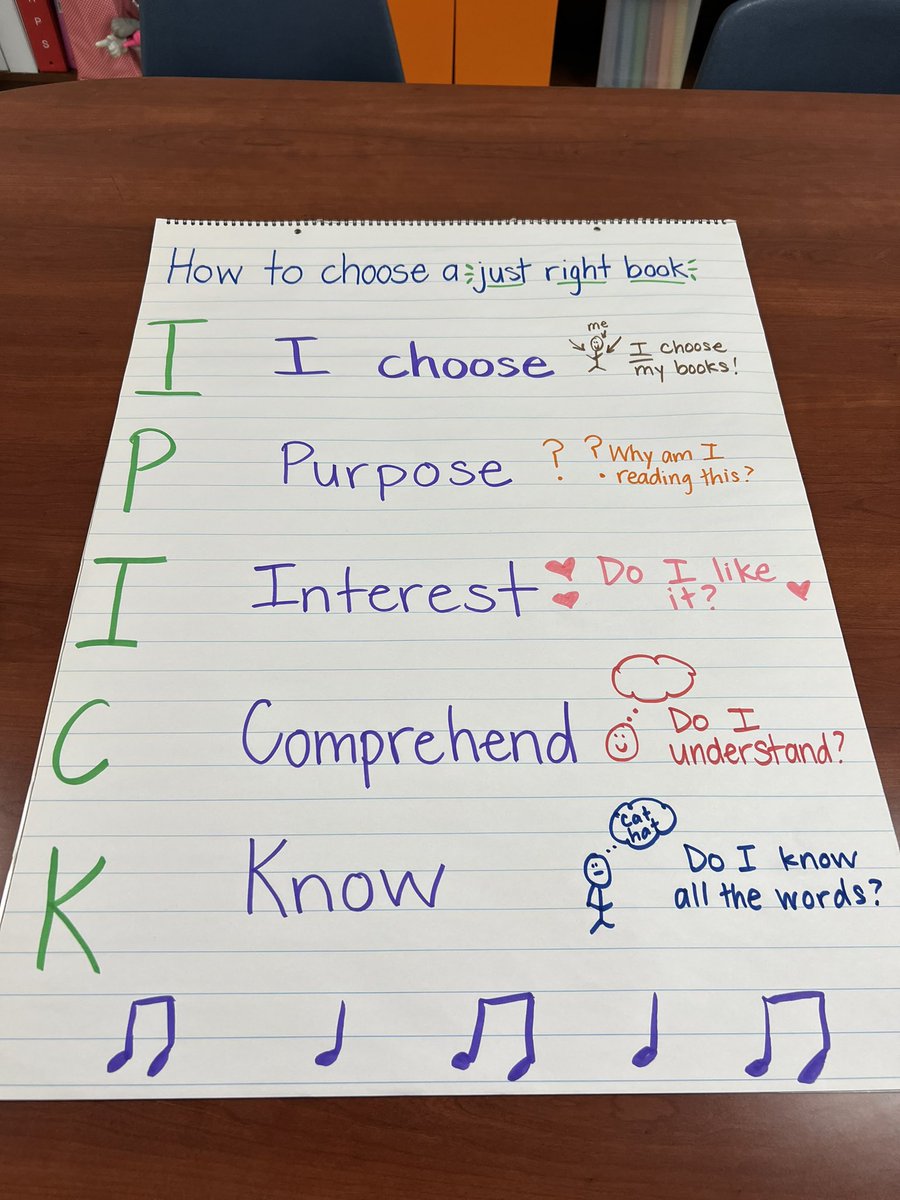 H P S
How to choose a just right book
I I choose me I choose
my books!
P Purpose ? ? Why am I
reading this?
I Interest Do I like
it?
C Comprehend Do I
understand?
K Know cat
hat Do I know
all the words?